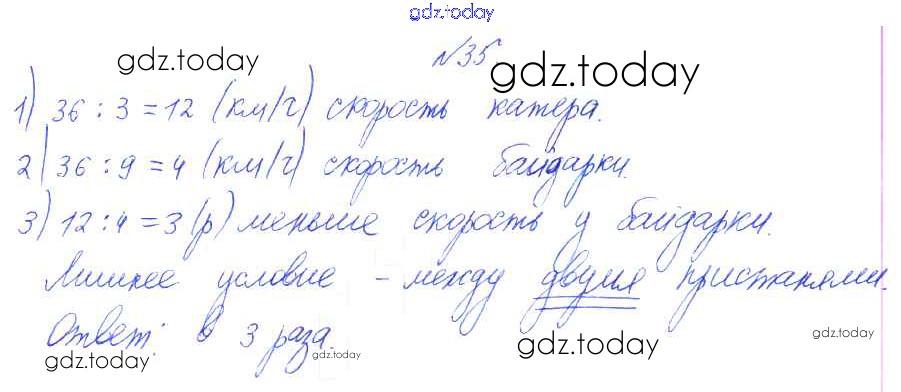 gdz.today
№35
gdz.today
gdz.today
1) 36 : 3 = 12 (км/ч) скорость катера.
2) 36 : 9 = 4 (км/ч) скорость байдарки.
3) 12 : 4 = 3 (р) меньше скорость у байдарки.
Лишнее условие - между двумя пристанями.
Ответ: в 3 раза.
gdz.today
gdz.today
gdz.today
gdz.today